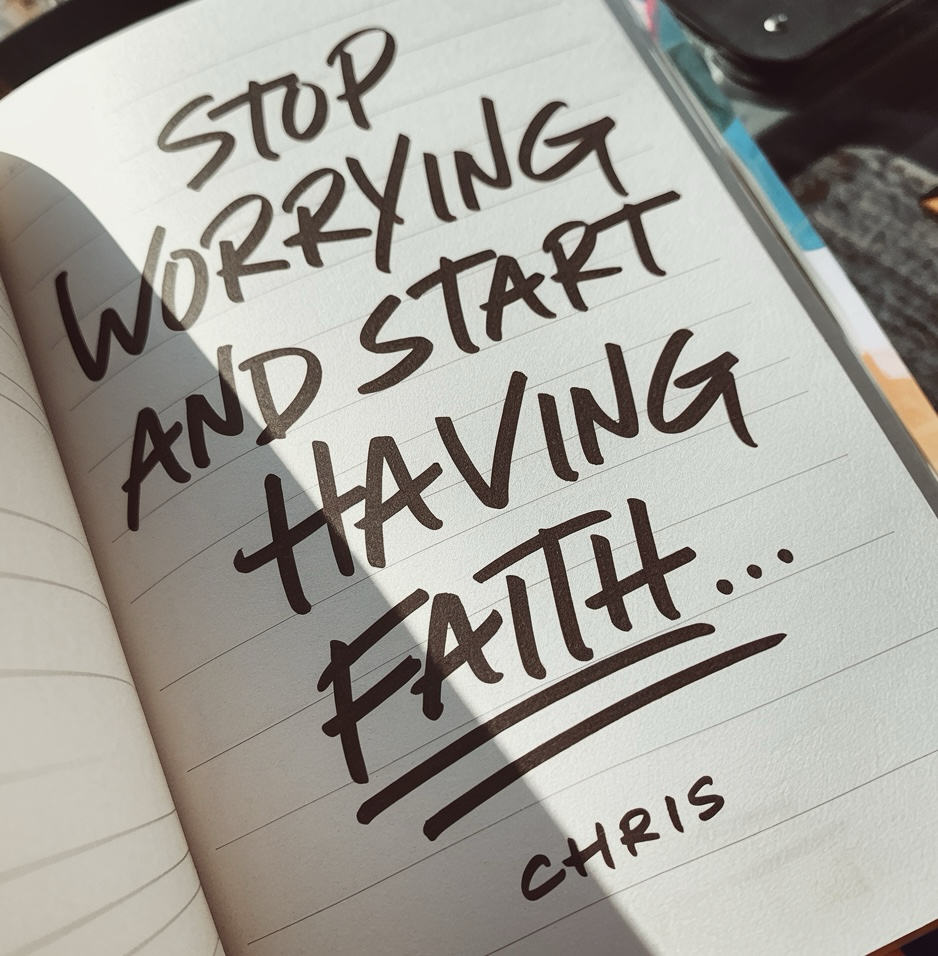 STOP
WORRYING
AND START
HAVING
FAITH...
CHRIS